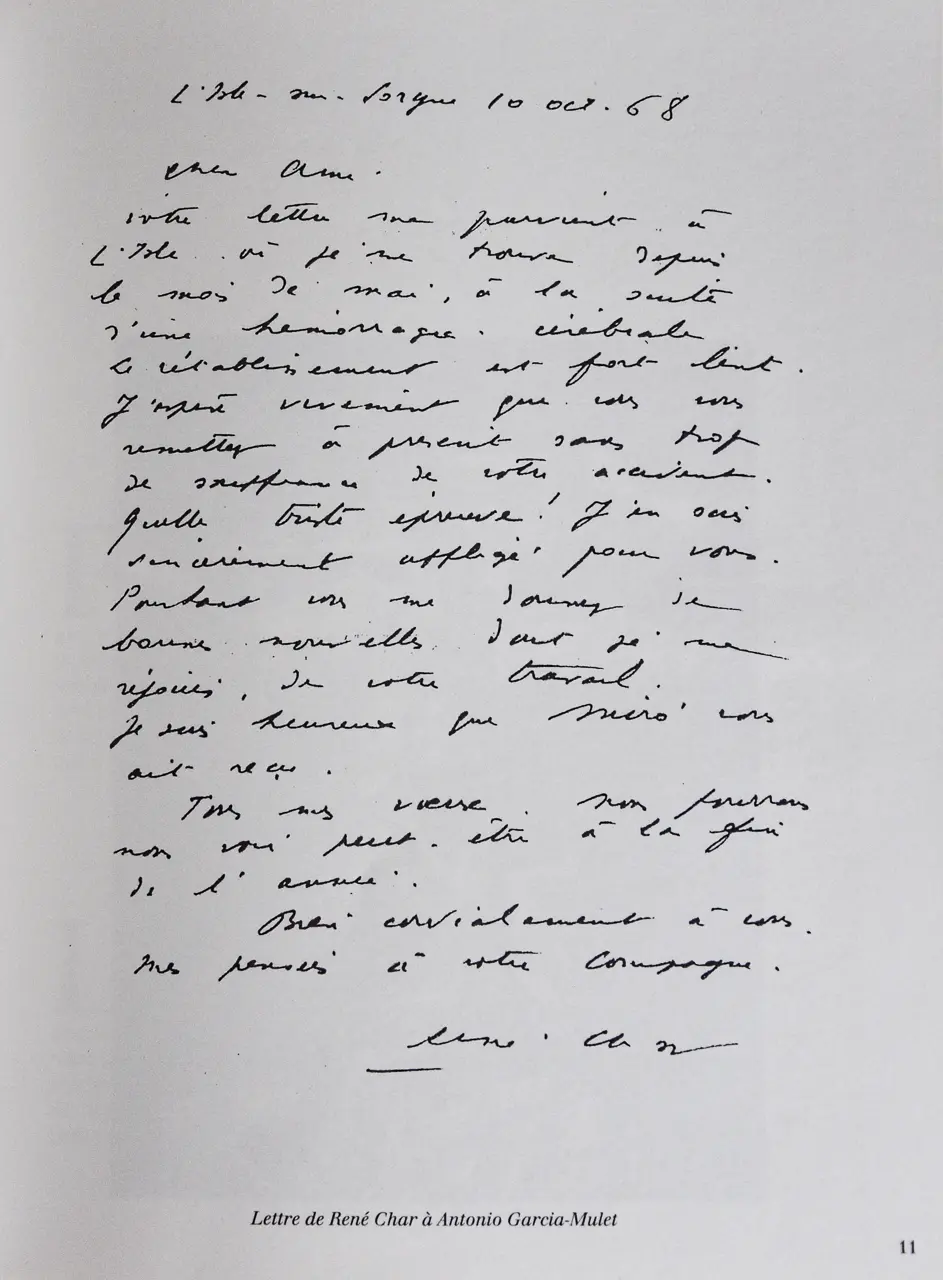 L'Isle-sur-Sorgue 10 oct. 68
Cher Ami.
votre lettre me parvient à
L'Isle où je me trouve depuis
le mois de mai, à la suite
d'une hémorragie cérébrale
Le rétablissement est fort lent.
J'espère vivement que vous vous
remettez à présent sans trop
de souffrance de votre accident.
Quelle triste épreuve! J'en suis
sincèrement affligé pour vous.
Pourtant vous me donnez de
bonnes nouvelles dont je me
réjouis, de votre travail.
Je suis heureux que Miró vous
ait reçu.
Tous mes vœux. Nous pourrons
nous voir peut-être à la fin
de l'année.
Bien cordialement à vous.
Mes pensées à votre Compagne.
René Char
Lettre de René Char à Antonio Garcia-Mulet
11